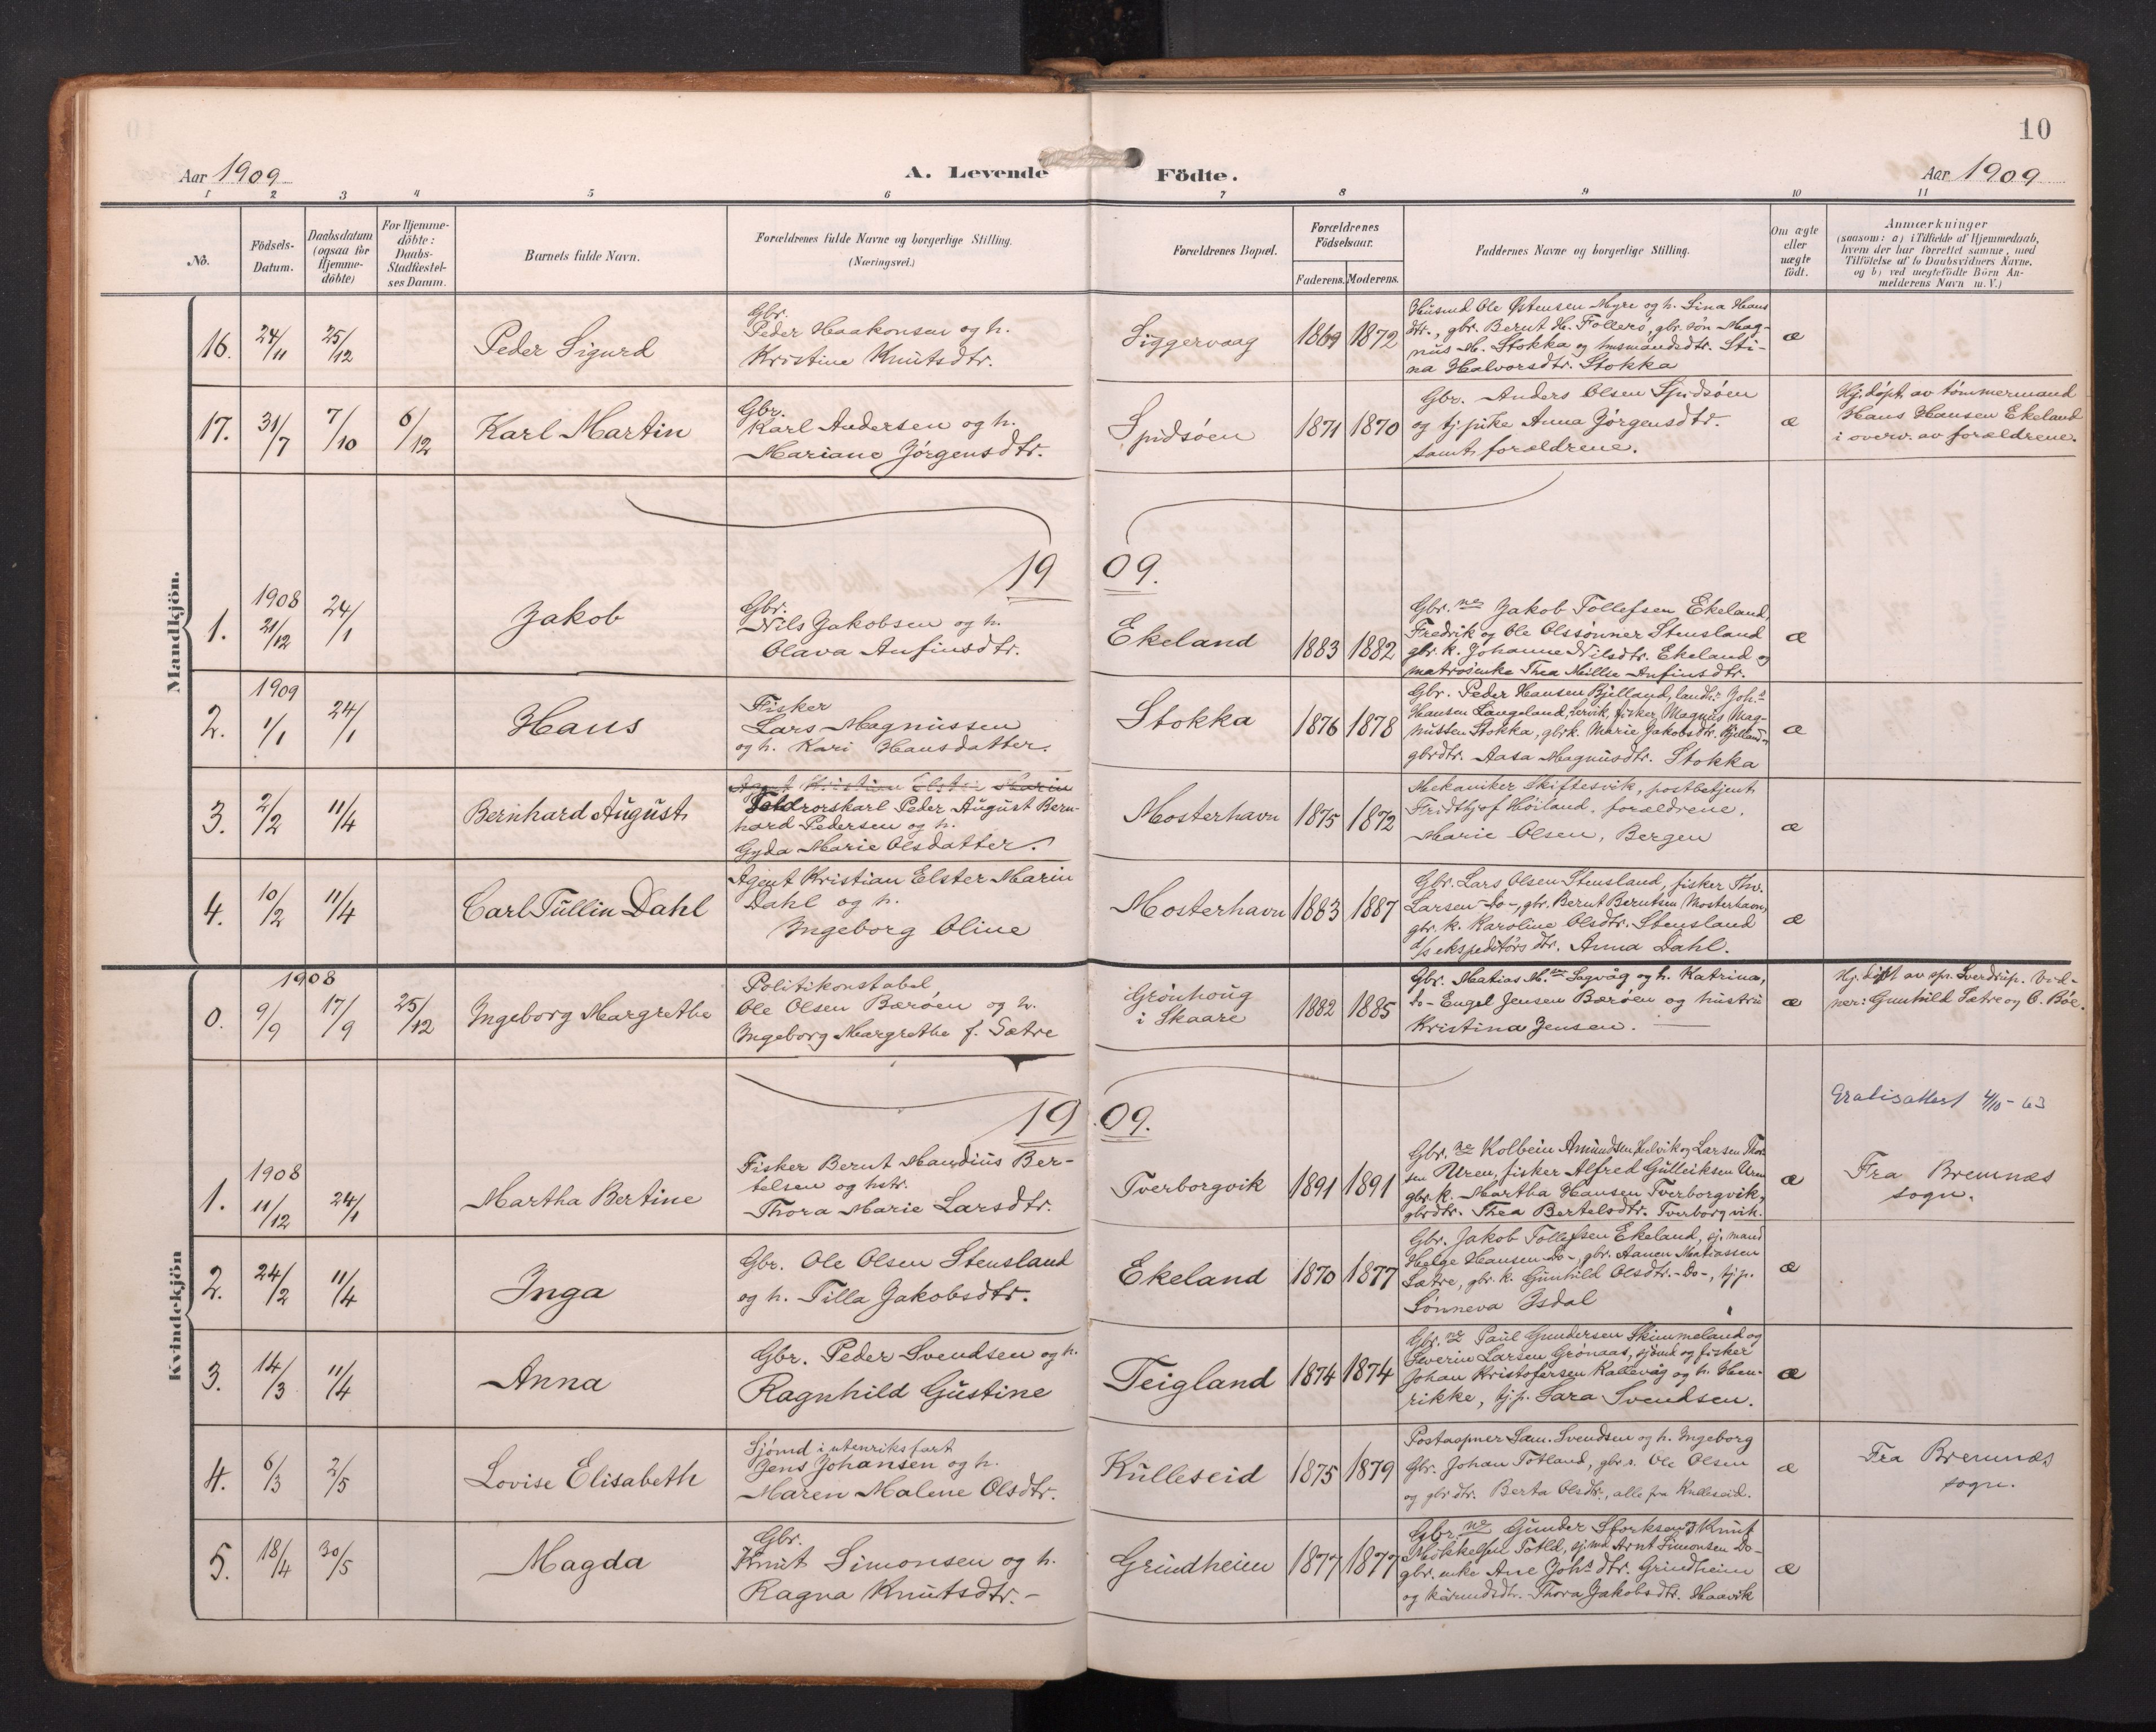 10
Aar 1909
A. Levende Födte.
Aar 1909
1 2 3 4 5 6 7 8 9 10 11
No.
Födsels-
Datum.
Daabsdatum
(ogsaa for
Hjemme-
döbte)
For Hjemme-
döbte:
Daabs-
Stadfæstel-
ses Datum.
Barnets fulde Navn.
Forældrenes fulde Navne og borgerlige Stilling.
(Næringsvei.)
Forældrenes Bopæl.
Forældrenes
Födselsaar.
Faderens. Moderens.
Faddernes Navne og borgerlige Stilling.
Om ægte
eller
uægte
födt.
Anmærkninger
(saasom: a) i Tilfælde af Hjemmedaab,
hvem der har forrettet samme, med
Tilföielse af to Daabsvidners Navne,
og b) ved uægtefödte Börn An-
melderens Navn m. V.)
Mandkjön.
16. 24/11 25/12
Peder Sigurd
Gbr.
Peder Haakonsen og h.
Kristine Knutsdtr.
Siggervaag
1869 1872
Husmd Ole Østensen Myre og h. Sina Hans
dtr., gbr. Bernt H. Føllerø, gbr. søn Mag-
nus M. Stokka og husmandsdtr. Sti-
na Halvorsdtr. Stokka
æ
17. 31/7 7/10 6/12
Karl Martin
Gbr.
Karl Andersen og h.
Mariane Jørgensdtr.
Spidsøen
1871 1870
Gbr. Anders Olsen Spidsøen
og tj. pike Anna Jørgensdtr.
samt forældrene.
æ
Hj.døpt av tømmermand
Hans Hansen Ekeland
i overv. av forældrene.
1909.
1. 1908 21/12 24/1
Jakob
Gbr.
Nils Jakobsen og h.
Olava Anfinsdtr.
Ekeland
1883 1882
Gbr.ne Jakob Tollefsen Ekeland,
Fredrik og Ole Olssønner Stensland
gbr. k. Johanne Nilsdtr. Ekeland og
matrosenke Thea Millie Anfinsdtr.
æ
2. 1909 1/1 24/1
Hans
Fisker
Lars Magnussen
og h. Kari Hansdatter.
Stokka
1876 1878
Gbr. Peder Hansen Bjelland, landh. Joh.s
Hansen Langeland, Lervik, fisker Magnus Mag-
nussen Stokka, gbrk. Marie Jakobsdtr. Bjelland
gbrdtr. Aasa Magnusdtr. Stokka
æ
3. 2/2 11/4
Bernhard August
Agent Kristian Elster Marin
Toldrorskarl Peder August Bern-
hard Pedersen og h.
Gyda Marie Olsdatter.
Mosterhavn
1875 1872
Mekaniker Skiftesvik, postbetjent
Fridthjof Høiland, forældrene.
Marie Olsen, Bergen
æ
4. 10/2 11/4
Carl Tullin Dahl
Agent Kristian Elster Marin
Dahl og h.
Ingeborg Oline
Mosterhavn
1883 1887
Gbr. Lars Olsen Stensland, fisker Thv.
Larsen -do-, gbr. Bernt Berntsen Mosterhavn,
gbr. k. Karoline Olsdtr. Stensland
d/s ekspeditørs dtr. Anna Dahl.
æ
Kvindekjön
0. 1908 9/9 17/9 25/12
Ingeborg Margrethe
Politikonstabel
Ole Olsen Bærøen og h.
Ingeborg Margrethe f. Sætre
Grønhoug
i Skaare
1882 1885
Gbr. Matias M.sen Sagvåg og h. Katrina,
do- Engel Jensen Bærøen og hustru
Kristina Jensen.
æ
Hj. døpt av spr. Sverdrup. Vid-
ner: Gunhild Sætre og O. Bøe.
1909.
Gratisattest 4/10-63
1. 1908 11/12 24/1
Martha Bertine
Fisker Bernt Mandius Ber-
telsen og hstr.
Thora Marie Larsdtr.
Tverborgvik
1891 1891
Gbr.ne Kolbein Amundsen Hulvik og Larsen Thor
sen Uren, fisker Alfred Gulleiksen Uren
gbr. k. Martha Hansen Tverborgvik,
gbrdtr. Thea Bertelsdtr. Tverborgvik.
æ
Fra Bremnæs
sogn.
2. 24/2 11/4
Inga
Gbr. Ole Olsen Stensland
og h. Tilla Jakobsdtr.
Ekeland
1870 1877
Gbr. Jakob Tollefsen Ekeland, sj. mand
Helge Hansen -do-, gbr. Aanen Matiassen
Sætre, gbr. k. Gunhild Olsdtr. -do-, tj.p.
Sønneva Isdal
æ
3. 14/3 11/4
Anna
Gbr. Peder Svendsen og h.
Ragnhild Gustine
Teigland
1874 1874
Gbr.ne Paul Gundersen Skimmeland og
Severin Larsen Grønaas, sjømd og fisker
Johan Kristofersen Kallevåg og h. Hen-
rikke, tj.p. Sara Svendsen.
æ
4. 6/3 2/5
Lovise Elisabeth
Sjømd i utenriksfart
Jens Johansen og h.
Maren Malene Olsdtr.
Kulleseid
1875 1879
Postaapner Sam. Svendsen og h. Ingeborg
Gbr. Johan Totland, gbr s. Ole Olsen
og gbr dtr. Berta Olsdtr., alle fra Kulleseid.
æ
Fra Bremnæs
sogn.
5. 18/4 30/5
Magda
Gbr.
Knut Simonsen og h.
Ragna Knutsdtr. -
Grindheim
1877 1877
Gbr.ne Gunder Storksen & Knut
Mikkelsen Totld, sj.md Arnt Simonsen Do-
gbr. enke Ane Joh.s dtr. Grindheim
og kårmdsdtr. Thora Jakobsdtr. Haavik
æ